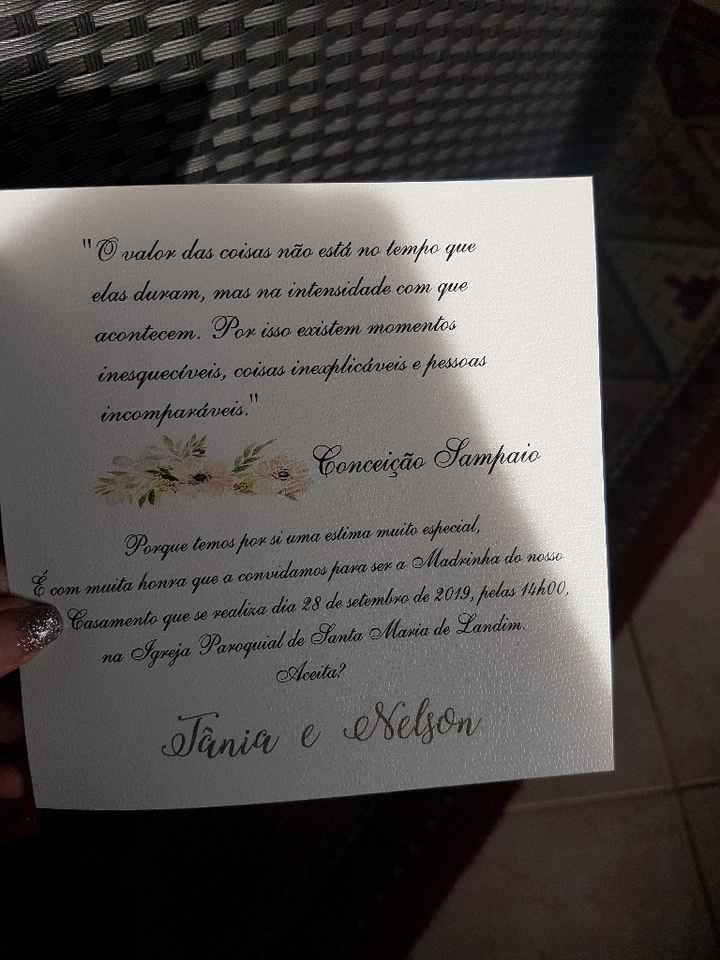 "O valor das coisas não está no tempo que
elas duram, mas na intensidade com que
acontecem. Por isso existem momentos
inesquecíveis, coisas inexplicáveis e pessoas
incomparáveis."
Conceição Sampaio
Porque temos por si uma estima muito especial,
É com muita honra que a convidamos para ser a Madrinha do nosso
Casamento que se realiza dia 28 de setembro de 2019, pelas 14h00,
na Igreja Paroquial de Santa Maria de Landim.
Aceita?
Tânia e Nelson